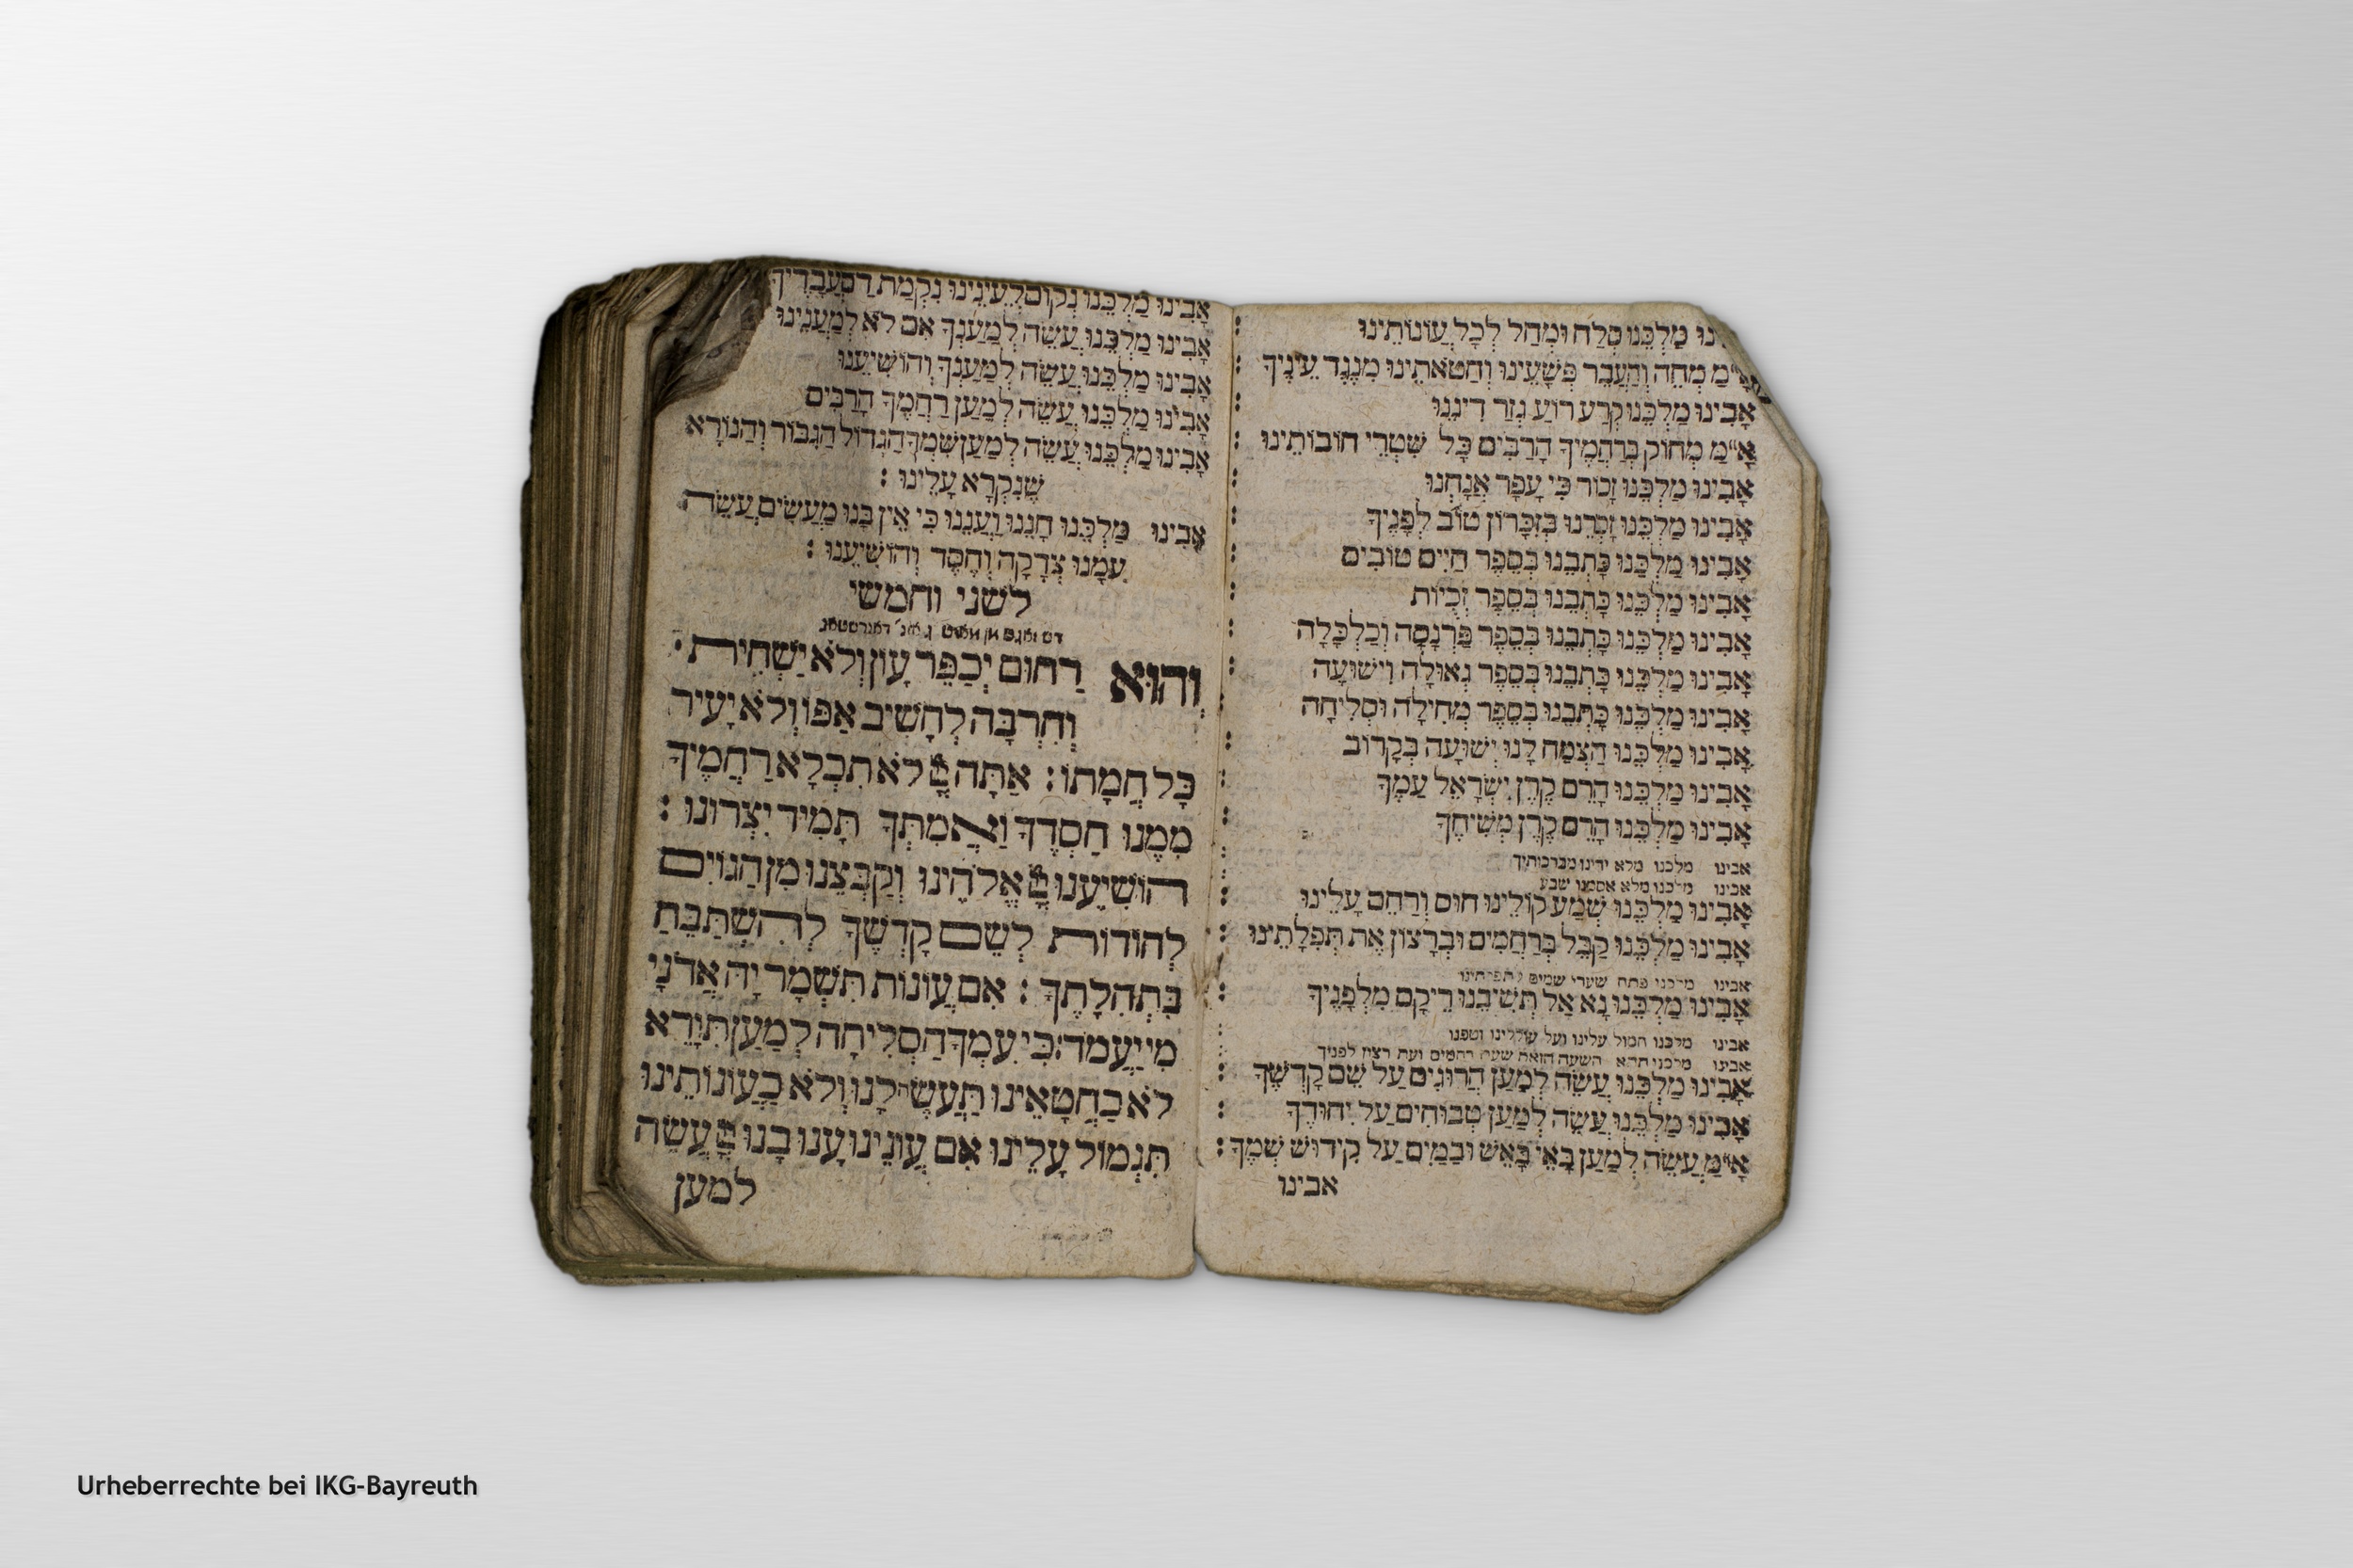 מַלְכֵּנוּ סְלַח וּמְחַל לְכָל עֲוֹנוֹתֵינוּ :
א״מַ מְחֵה וְהַעֲבֵר פְּשָׁעֵינוּ וְחַטֹאתֵינוּ מִנֶגֶד עֵינֶיךָ :
אָבִינוּ מַלְכֵּנוּ קְרַע רוֹעַ גְזַר דִינֵנוּ :
אָ״מַ מְחוֹק בְּרַחֲמֶיךָ הָרַבִּים כָּל שִׁטְרֵי חוֹבוֹתֵינוּ :
אָבִינוּ מַלְכֵּנוּ זְכוֹר כִּי עָפָר אֲנָחְנוּ :
אָבִינוּ מַלְכֵּנוּ זָכְרֵנוּ בְּזִכָּרוֹן טוֹב לְפָנֶיךָ :
אָבִינוּ מַלְכֵּנוּ כָּתְבֵנוּ בְּסֵפֶר חַיִּים טוֹבִים :
אָבִינוּ מַלְכֵּנוּ כָּתְבֵנוּ בְּסֵפֶר זְכֻיוֹת :
אָבִינוּ מַלְכֵּנוּ כָּתְבֵנוּ בְּסֵפֶר פַּרְנָסָה וְכַלְכָּלָה
אָבִינוּ מַלְכֵּנוּ כָּתְבֵנוּ בְּסֵפֶר גְאוּלָה וִישׁוּעָה :
אָבִינוּ מַלְכֵּנוּ כָּתְבֵנוּ בְּסֵפֶר מְחִילָה וּסְלִיחָה :
אָבִינוּ מַלְכֵּנוּ הַצְמַח לָנוּ יְשׁוּעָה בְּקָרוֹב :
אָבִינוּ מַלְכֵּנוּ הָרֵם קֶרֶן יִשְׂרָאֵל עַמֶךָ :
אָבִינוּ מַלְכֵּנוּ הָרֵם קֶרֶן מְשִׁיחֶךָ :
אבינו מלכנו מלא ידינו מברכותיך
אבינו מלכנו מלא אסמנו שבע
אָבִינוּ מַלְכֵּנוּ שְׁמַע קוֹלֵינוּ חוּס וְרַחֵם עָלֵינוּ :
אָבִינוּ מַלְכֵּנוּ קַבֵּל בְּרַחֲמִים וּבְרָצוֹן אֶת תְּפִלָתֵינוּ :
אבינו מלכנו פתח שערי שמים לתפלתינו
אָבִינוּ מַלְכֵּנוּ נָא אַל תְּשִׁיבֵנוּ רֵיקָם מִלְפָנֶיךָ :
אבינו מלכנו חמול עלינו ועל עוללינו וטפנו
אבינו מלכנו תהא השעה הזאת שעת רחמים ועת רצון לפניך
אָבִינוּ מַלְכֵּנוּ עֲשֵׂה לְמַעַן הֲרוּגִים עַל שֵׁם קָדְשֶׁךָ :
אָבִינוּ מַלְכֵּנוּ עֲשֵׂה לְמַעַן טְבוּחִים עַל יִחוּדֶךָ :
אָ״מַ עֲשֵׂה לְמַעַן בָּאֵי בָּאֵשׁ וּבַמַיִם עַל קִידוּשׁ שְׁמֶךָ :
אבינו
אָבִינוּ מַלְכֵּנוּ נְקוֹם לְעֵינֵינוּ נִקְמַת דַם עֲבָדֶיךָ
אָבִינוּ מַלְכֵּנוּ עֲשֵׂה לְמַעַנְךָ אִם לֹא לְמַעֲנֵינוּ
אָבִינוּ מַלְכֵּנוּ עֲשֵׂה לְמַעַנְךָ וְהוֹשִׁיעֵנוּ
אָבִינוּ מַלְכֵּנוּ עֲשֵׂה לְמַעַן רַחֲמֶךָ הָרַבִּים
אָבִינוּ מַלְכֵּנוּ עֲשֵׂה לְמַעַן שִׁמְךָ הַגָדוֹל הַגִבּוֹר וְהַנוֹרָא
שֶׁנִקְרָא עָלֵינוּ :
אָבִינוּ מַלְכֵּנוּ חָנֵנוּ וַעֲנֵנוּ כִּי אֵין בָּנוּ מַעֲשִׂים עֲשֵׂה
עִמָנוּ צְדָקָה וְחֶסֶד וְהוֹשִׁיעֵנוּ :
לשני וחמשי
וְהוּא רַחוּם יְכַפֵּר עָוֹן וְלֹא יַשְׁחִית·
וְהִרְבָּה לְהָשִׁיב אַפּוֹ וְלֹא יָעִיר
כָּל חֲמָתוֹ : אַתָּה יְיָ לֹא תִכְלָא רַחֲמֶיךָ
מִמֶנוּ חַסְדְךָ וַאֲמִתְּךָ תָּמִיד יִצְרוּנוּ :
הוֹשִׁיעֵנוּ יְיָ אֱלֹהֵינוּ וְקַבְּצֵנוּ מִן הַגוֹיִם
לְהוֹדוֹת לְשֵׁם קָדְשֶׁךָ לְהִשְׁתַּבֵּחַ
בִּתְהִלָתֶךָ : אִם עֲוֹנוֹת תִּשְׁמָר יָהּ אֲדֹנָי
מִי יַעֲמֹד : כִּי עִמְךָ הַסְלִיחָה לְמַעַן תִּוָרֵא
לֹא כַחֲטָאֵינוּ תַּעֲשֶׂה לָנוּ וְלֹא כַעֲוֹנוֹתֵינוּ
תִּגְמוֹל עָלֵינוּ אִם עֲוֹנֵינוּ עָנוּ בָנוּ יְיָ עֲשֵׂה
למען
Urheberrechte bei IKG-Bayreuth